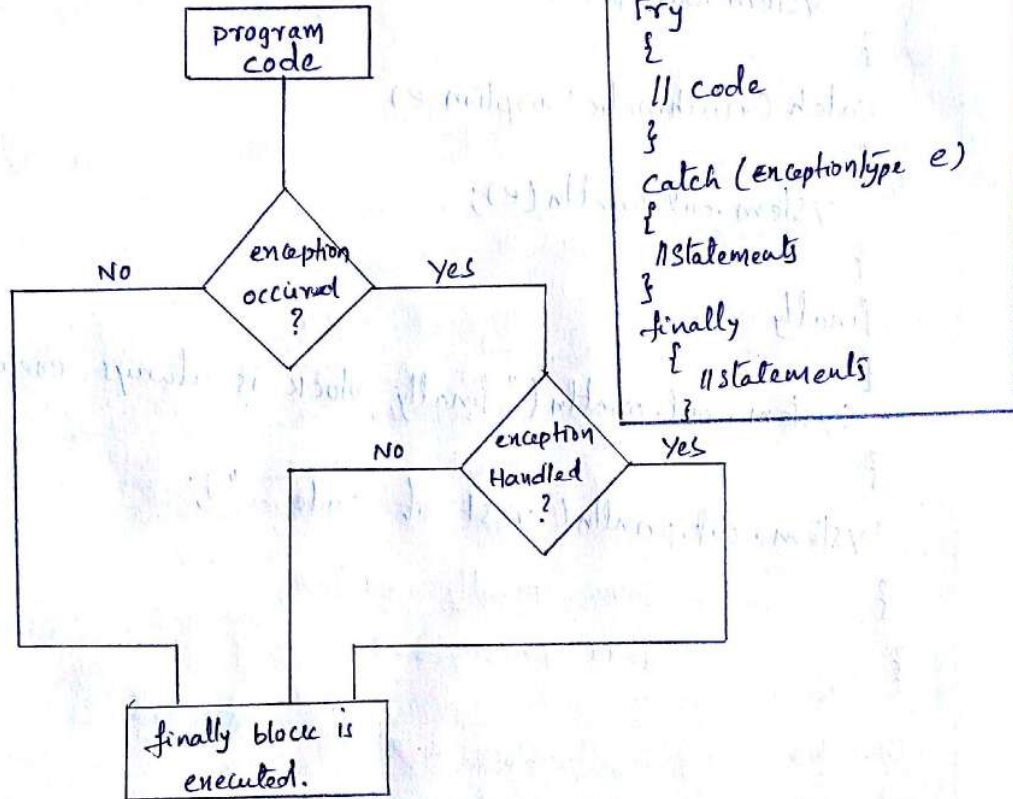 program
code
exception
occurred
?
No
Yes
exception
Handled
?
No
Yes
finally block is
executed.
Try
{
// code
}
catch (exceptionType e)
{
//statements
}
finally
{
//statements
}